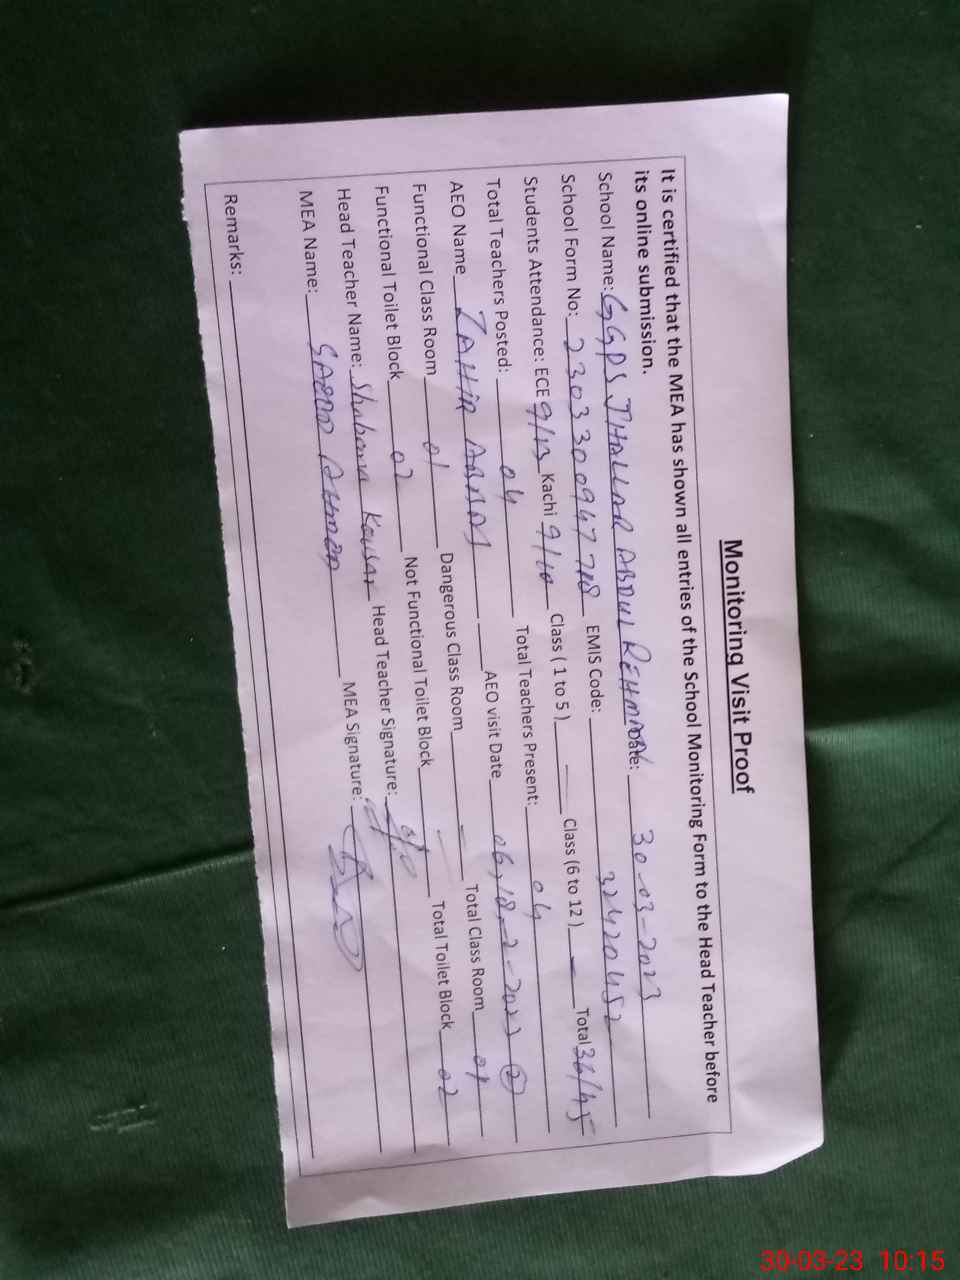 Monitoring Visit Proof
It is certified that the MEA has shown all entries of the School Monitoring Form to the Head Teacher before
its online submission.
School Name: GGPS JHALLAR ABDUL REHMAN Date: 30-03-2023
School Form No: EMIS Code: 32420452
Students Attendance: ECE 9/13 Kachi 9/10 Class ( 1 to 5 ) — Class (6 to 12 ) — Total 36/45
Total Teachers Posted: 04 Total Teachers Present: 04
AEO Name ZAHIR ABBAS AEO visit Date 06,18-2-2023 (2)
Functional Class Room 01 Dangerous Class Room — Total Class Room 01
Functional Toilet Block 02 Not Functional Toilet Block — Total Toilet Block 02
Head Teacher Name: Shabana Kousar Head Teacher Signature:
MEA Name: AHMAD MEA Signature:
Remarks:
30-03-23 10:15